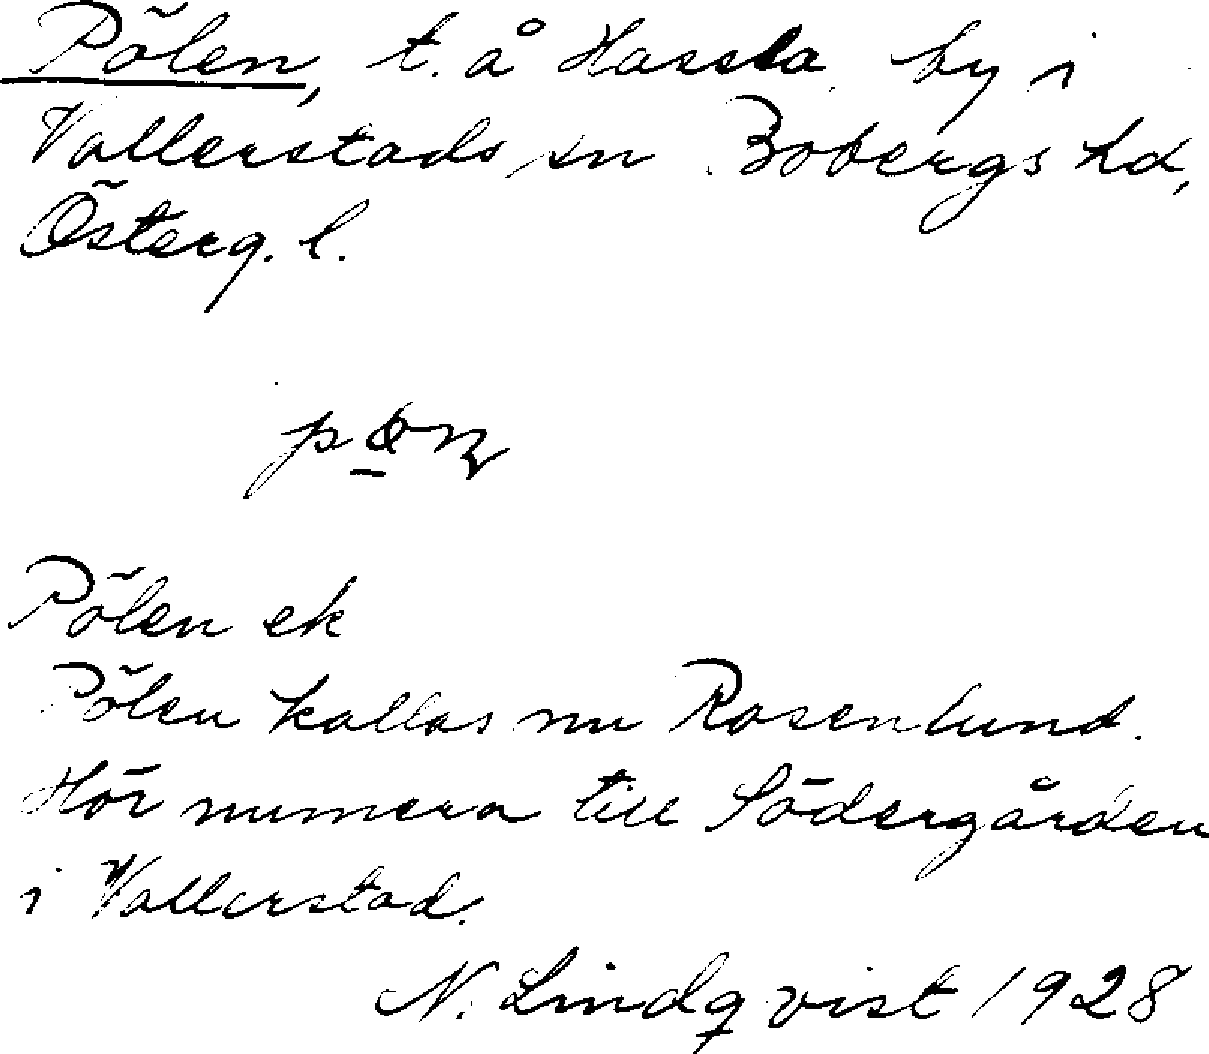 Pölen, t. å Hassla by i
Vallerstads sn Bobergs hd,
Österg. l.
Pölen ek
Pölen kallas nu Rosenlund.
Hör numera till Södergården
i Vallerstad.
N. Lindqvist 1928